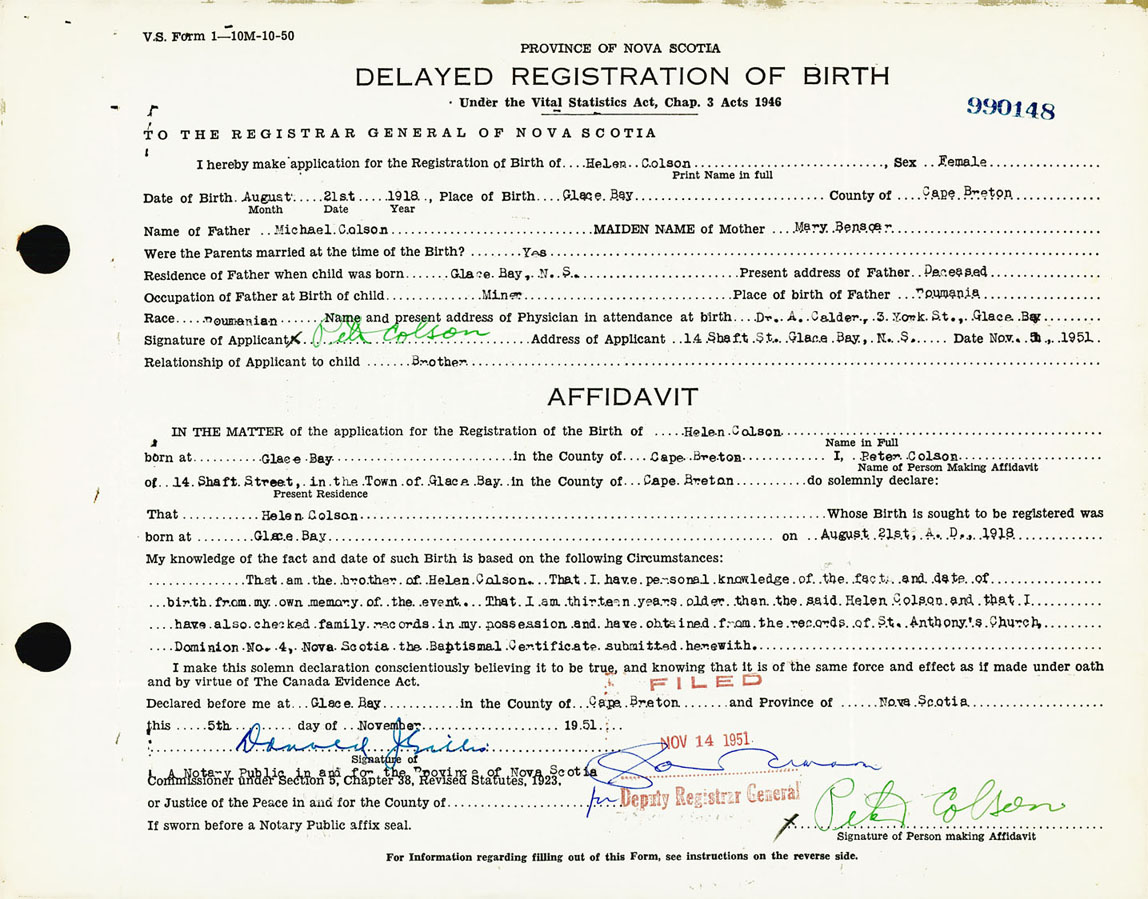 V.S. Form 1—10M-10-50
PROVINCE OF NOVA SCOTIA
DELAYED REGISTRATION OF BIRTH
Under the Vital Statistics Act, Chap. 3 Acts 1946
990148
TO THE REGISTRAR GENERAL OF NOVA SCOTIA
I hereby make application for the Registration of Birth of....Helen..Colson............................, Sex ..Female..........
Print Name in full
Date of Birth. August.....21st.....1918.., Place of Birth....Glace.Bay.................... County of ....Cape.Breton..........
Month Date Year
Name of Father ..Michael.Colson..............MAIDEN NAME of Mother ....Mary.Benscar..........
Were the Parents married at the time of the Birth? ......Yes..........
Residence of Father when child was born.......Glace.Bay,.N..S...............Present address of Father..Decessed..........
Occupation of Father at Birth of child.............Miner..............Place of birth of Father ...Roumania..........
Race.....Roumanian.......Name and present address of Physician in attendance at birth....Dr..A..Calder.,.3.York.St.,.Glace.Bay..........
Signature of Applicant X Pete Colson..........Address of Applicant ..14.Shaft.St..Glace.Bay,.N..S...... Date Nov.. 5.., 1951.
Relationship of Applicant to child .......Brother..........
AFFIDAVIT
IN THE MATTER of the application for the Registration of the Birth of .....Helen.Colson..........
Name in Full
born at..........Glace.Bay..............in the County of....Cape.Breton............ I, ..Peter.Colson..........
Name of Person Making Affidavit
of..14.Shaft.Street,.in.the.Town.of.Glace.Bay..in the County of...Cape.Breton...........do solemnly declare:
Present Residence
That ...........Helen.Colson....................Whose Birth is sought to be registered was
born at ........Glace.Bay.................... on ..August.21st,.A..D.,.1918..........
My knowledge of the fact and date of such Birth is based on the following Circumstances:
..............That.am.the.brother.of.Helen.Colson...That.I.have.personal.knowledge.of.the.fact.and.date.of..........
...birth.from.my.own.memory.of.the.event...That.I.am.thirteen.years.older.than.the.said.Helen.Colson.and.that.I..........
....have.also.checked.family.records.in.my.possession.and.have.obtained.from.the.records.of.St..Anthony's.Church,..........
....Dominion.No..4,.Nova.Scotia.the.Baptismal.Certificate.submitted.herewith...........
I make this solemn declaration conscientiously believing it to be true, and knowing that it is of the same force and effect as if made under oath
and by virtue of The Canada Evidence Act.
FILED
Declared before me at...Glace.Bay.............in the County of...Cape.Breton........and Province of .....Nova.Scotia..........
this .....5th........day of ..November.............. 1951...
NOV 14 1951
Signature of
A Notary Public in and for the Province of Nova Scotia
Commissioner under Section 5, Chapter 38, Revised Statutes, 1923,
or Justice of the Peace in and for the County of....................
Deputy Registrar General
Pete Colson
If sworn before a Notary Public affix seal.
Signature of Person making Affidavit
For Information regarding filling out of this Form, see instructions on the reverse side.